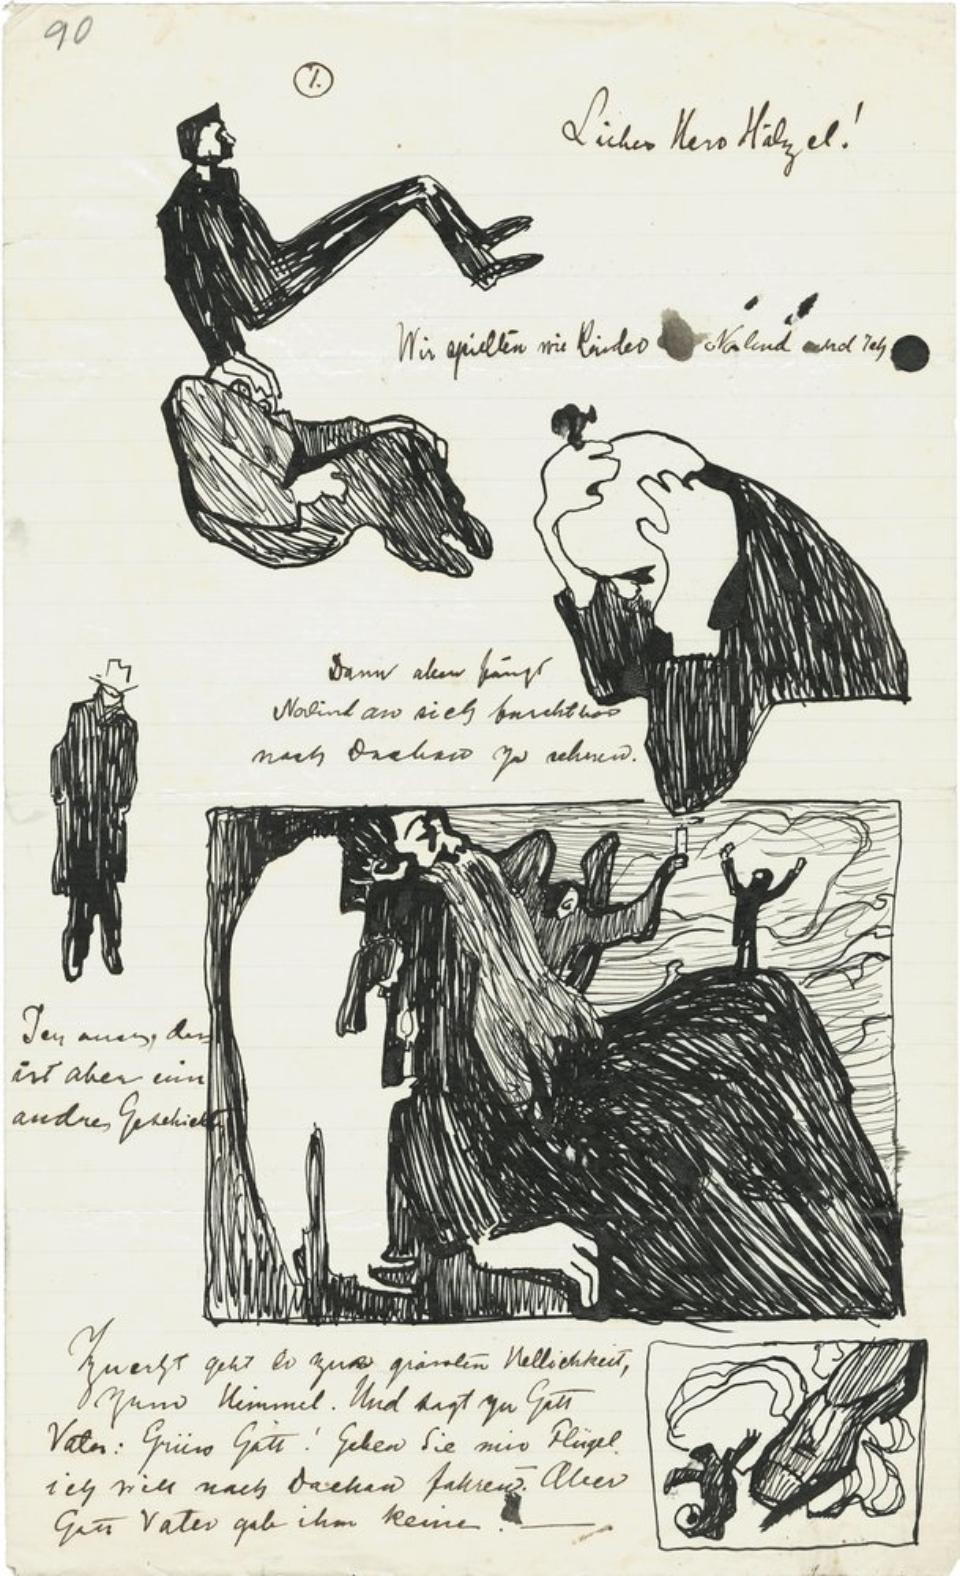 90
1.
Lieber Herr Hölzel!
Wir spielten wie Kinder Nolind und ich
Dann aber fängt
Nolind an sich furchtbar
nach Dachau zu sehnen.
Ich auch, das
ist aber eine
andres Geschichte
Zuerst geht er zur grössten Hellichkeit,
zum Himmel. Und sagt zu Gott
Vater: Grüss Gott! Geben Sie mir Flügel
ich will nach Dachau fahren. Aber
Gott Vater gab ihm keine.